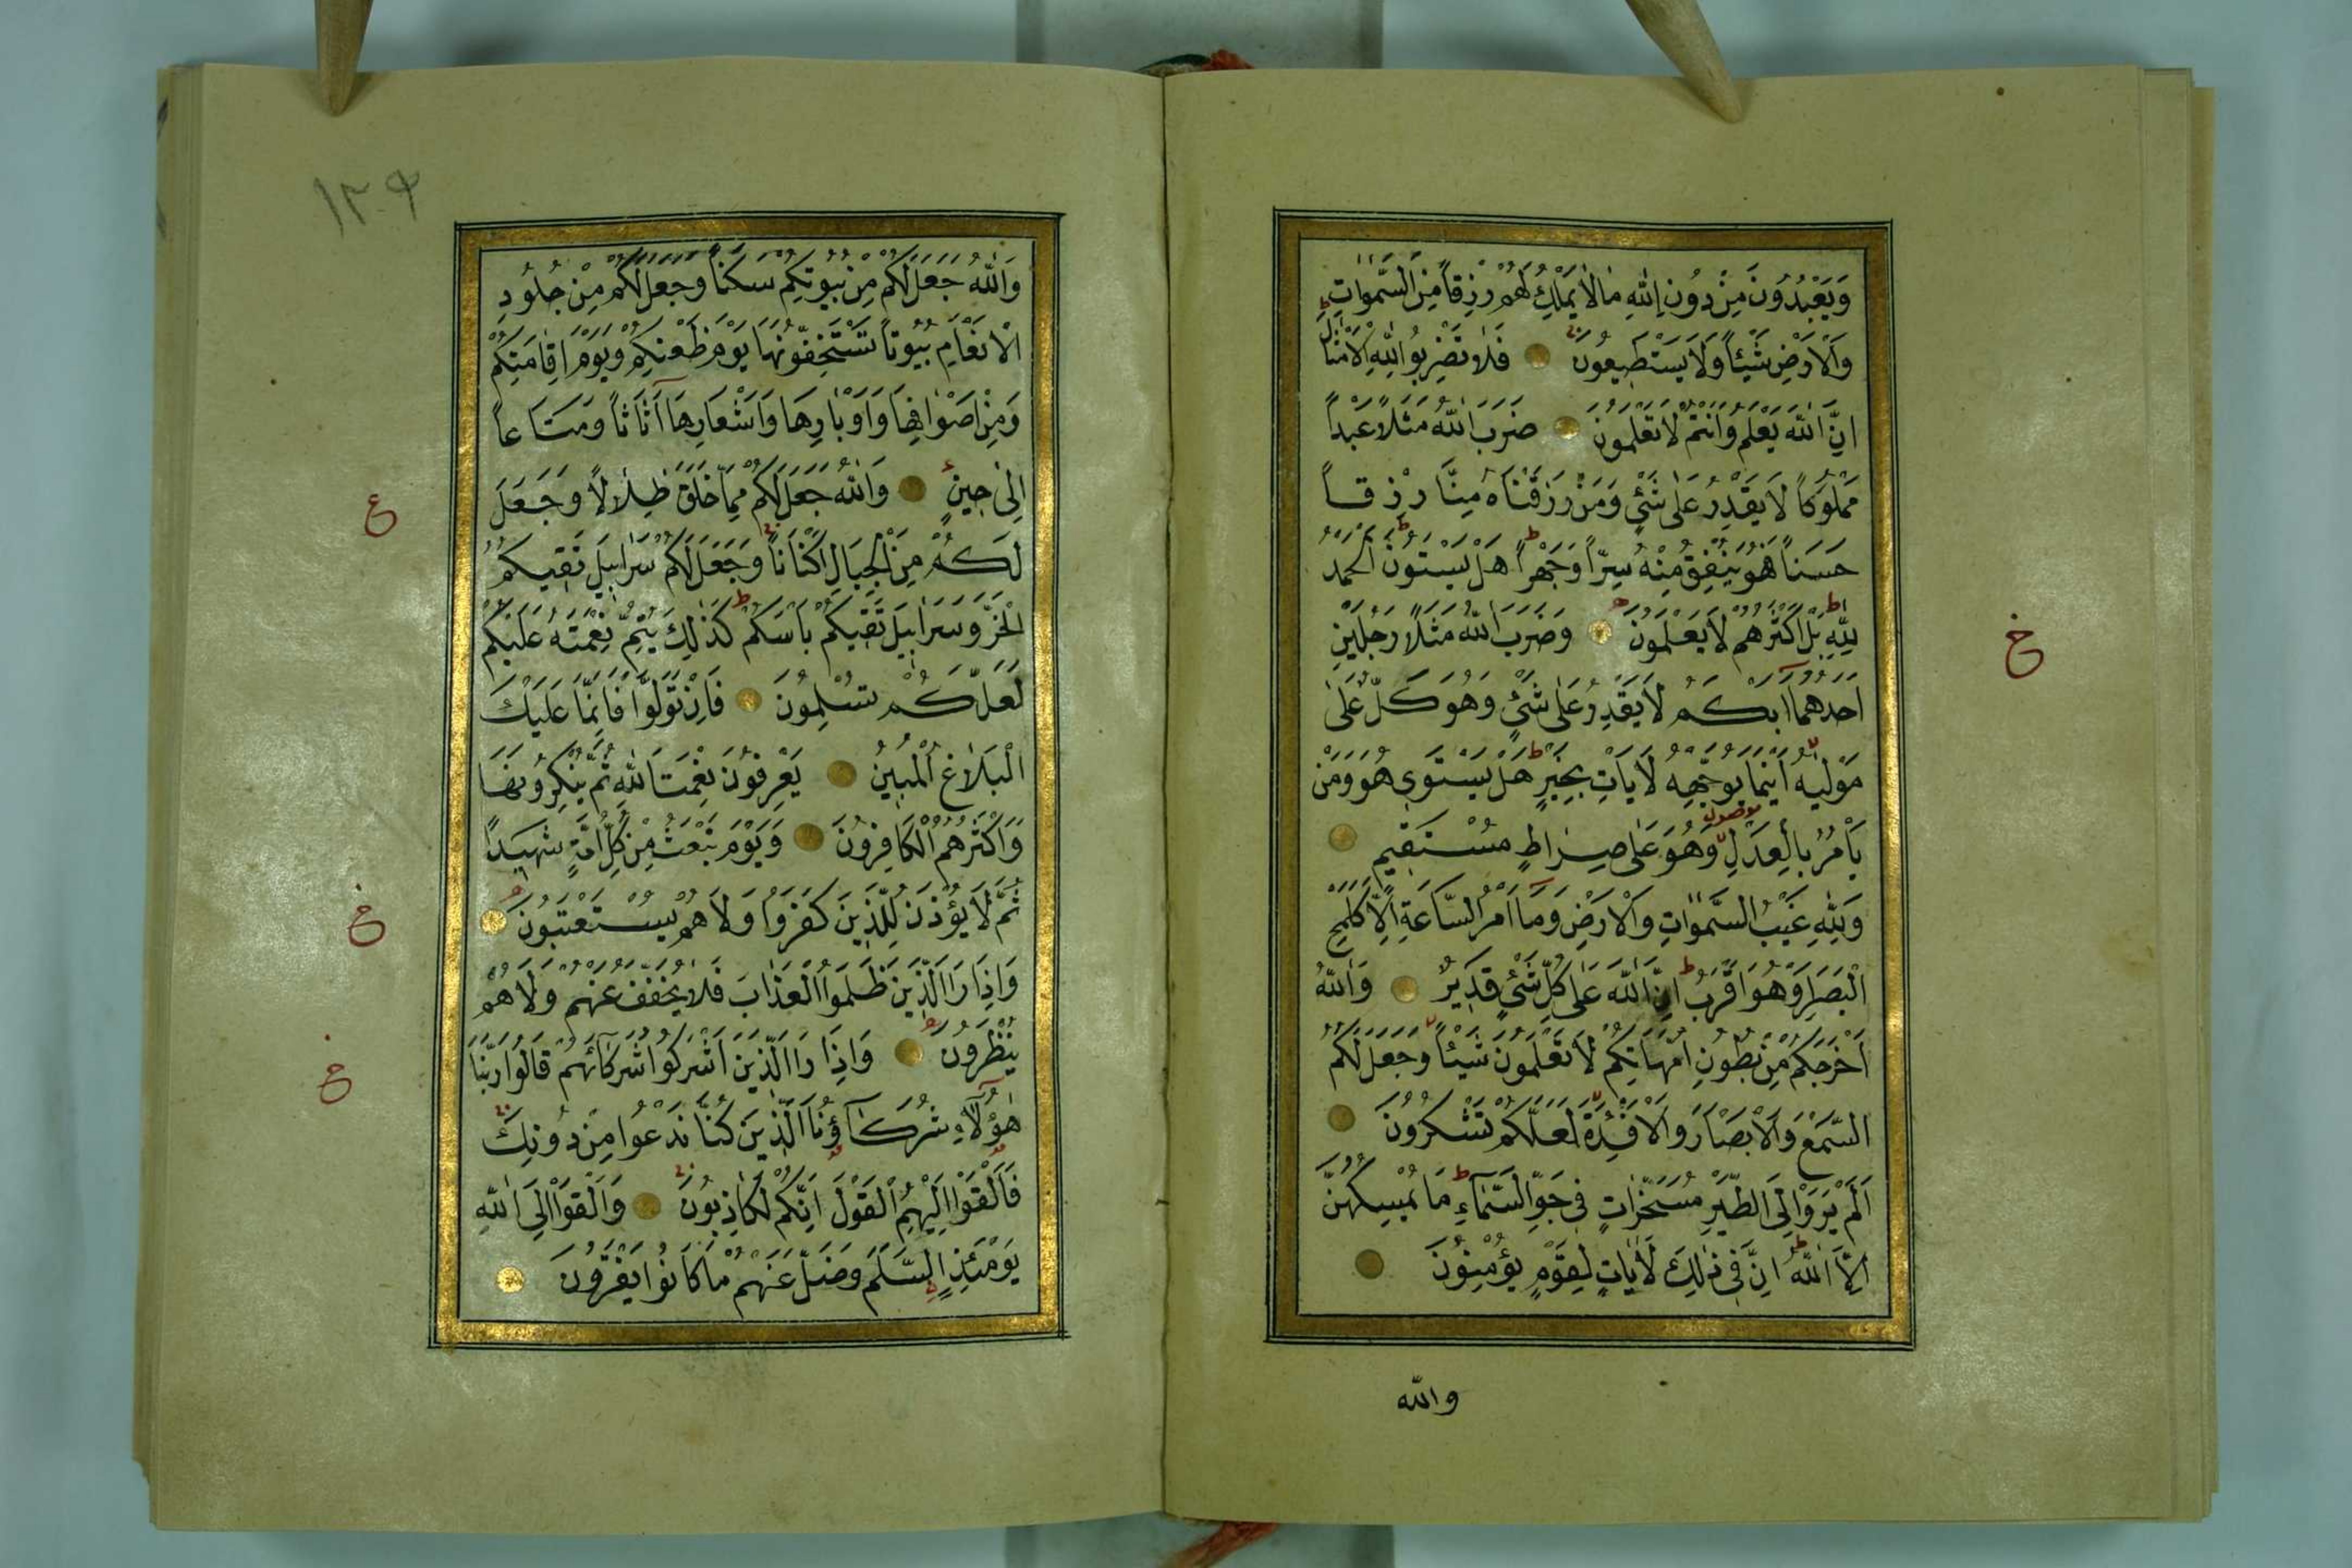 وَيَعْبُدُونَ مِنْ دُونِ اللّٰهِ مَا لَا يَمْلِكُ لَهُمْ رِزْقاً مِنَ السَّمٰوَاتِ
وَالْاَرْضِ شَيْئاً وَلَا يَسْتَطِيعُونَ فَلَا تَضْرِبُوا لِلّٰهِ الْاَمْثَالَ
اِنَّ اللّٰهَ يَعْلَمُ وَاَنْتُمْ لَا تَعْلَمُونَ ضَرَبَ اللّٰهُ مَثَلاً عَبْداً
مَمْلُوكاً لَا يَقْدِرُ عَلٰى شَيْءٍ وَمَنْ رَزَقْنَاهُ مِنَّا رِزْقاً
حَسَناً فَهُوَ يُنْفِقُ مِنْهُ سِرّاً وَجَهْراً هَلْ يَسْتَوُونَ اَلْحَمْدُ
لِلّٰهِ بَلْ اَكْثَرُهُمْ لَا يَعْلَمُونَ وَضَرَبَ اللّٰهُ مَثَلاً رَجُلَيْنِ
خ
اَحَدُهُمَا اَبْكَمُ لَا يَقْدِرُ عَلٰى شَيْءٍ وَهُوَ كَلٌّ عَلٰى
مَوْلٰيهُ اَيْنَمَا يُوَجِّهْهُ لَا يَاْتِ بِخَيْرٍ هَلْ يَسْتَوِى هُوَ وَمَنْ
يَاْمُرُ بِالْعَدْلِ وَهُوَ عَلٰى صِرَاطٍ مُسْتَقِيمٍ
وَلِلّٰهِ غَيْبُ السَّمٰوَاتِ وَالْاَرْضِ وَمَا اَمْرُ السَّاعَةِ اِلَّا كَلَمْحِ
الْبَصَرِ اَوْ هُوَ اَقْرَبُ اِنَّ اللّٰهَ عَلٰى كُلِّ شَيْءٍ قَدِيرٌ وَاللّٰهُ
اَخْرَجَكُمْ مِنْ بُطُونِ اُمَّهَاتِكُمْ لَا تَعْلَمُونَ شَيْئاً وَجَعَلَ لَكُمُ
السَّمْعَ وَالْاَبْصَارَ وَالْاَفْئِدَةَ لَعَلَّكُمْ تَشْكُرُونَ
اَلَمْ يَرَوْا اِلَى الطَّيْرِ مُسَخَّرَاتٍ فِى جَوِّ السَّمَآءِ مَا يُمْسِكُهُنَّ
اِلَّا اللّٰهُ اِنَّ فِى ذٰلِكَ لَاٰيَاتٍ لِقَوْمٍ يُؤْمِنُونَ
والله
١٢٩
وَاللّٰهُ جَعَلَ لَكُمْ مِنْ بُيُوتِكُمْ سَكَناً وَجَعَلَ لَكُمْ مِنْ جُلُودِ
الْاَنْعَامِ بُيُوتاً تَسْتَخِفُّونَهَا يَوْمَ ظَعْنِكُمْ وَيَوْمَ اِقَامَتِكُمْ
وَمِنْ اَصْوَافِهَا وَاَوْبَارِهَا وَاَشْعَارِهَا اَثَاثاً وَمَتَاعاً
اِلٰى حِينٍ وَاللّٰهُ جَعَلَ لَكُمْ مِمَّا خَلَقَ ظِلَالاً وَجَعَلَ
ع
لَكُمْ مِنَ الْجِبَالِ اَكْنَاناً وَجَعَلَ لَكُمْ سَرَابِيلَ تَقِيكُمُ
الْحَرَّ وَسَرَابِيلَ تَقِيكُمْ بَاْسَكُمْ كَذٰلِكَ يُتِمُّ نِعْمَتَهُ عَلَيْكُمْ
لَعَلَّكُمْ تُسْلِمُونَ فَاِنْ تَوَلَّوْا فَاِنَّمَا عَلَيْكَ
الْبَلَاغُ الْمُبِينُ يَعْرِفُونَ نِعْمَتَ اللّٰهِ ثُمَّ يُنْكِرُونَهَا
وَاَكْثَرُهُمُ الْكَافِرُونَ وَيَوْمَ نَبْعَثُ مِنْ كُلِّ اُمَّةٍ شَهِيداً
ثُمَّ لَا يُؤْذَنُ لِلَّذِينَ كَفَرُوا وَلَا هُمْ يُسْتَعْتَبُونَ
خ
وَاِذَا رَاَ الَّذِينَ ظَلَمُوا الْعَذَابَ فَلَا يُخَفَّفُ عَنْهُمْ وَلَا هُمْ
يُنْظَرُونَ وَاِذَا رَاَ الَّذِينَ اَشْرَكُوا شُرَكَآئَهُمْ قَالُوا رَبَّنَا
خ
هٰؤُلَآءِ شُرَكَآؤُنَا الَّذِينَ كُنَّا نَدْعُوا مِنْ دُونِكَ
فَاَلْقَوْا اِلَيْهِمُ الْقَوْلَ اِنَّكُمْ لَكَاذِبُونَ وَاَلْقَوْا اِلَى اللّٰهِ
يَوْمَئِذٍ السَّلَمَ وَضَلَّ عَنْهُمْ مَا كَانُوا يَفْتَرُونَ